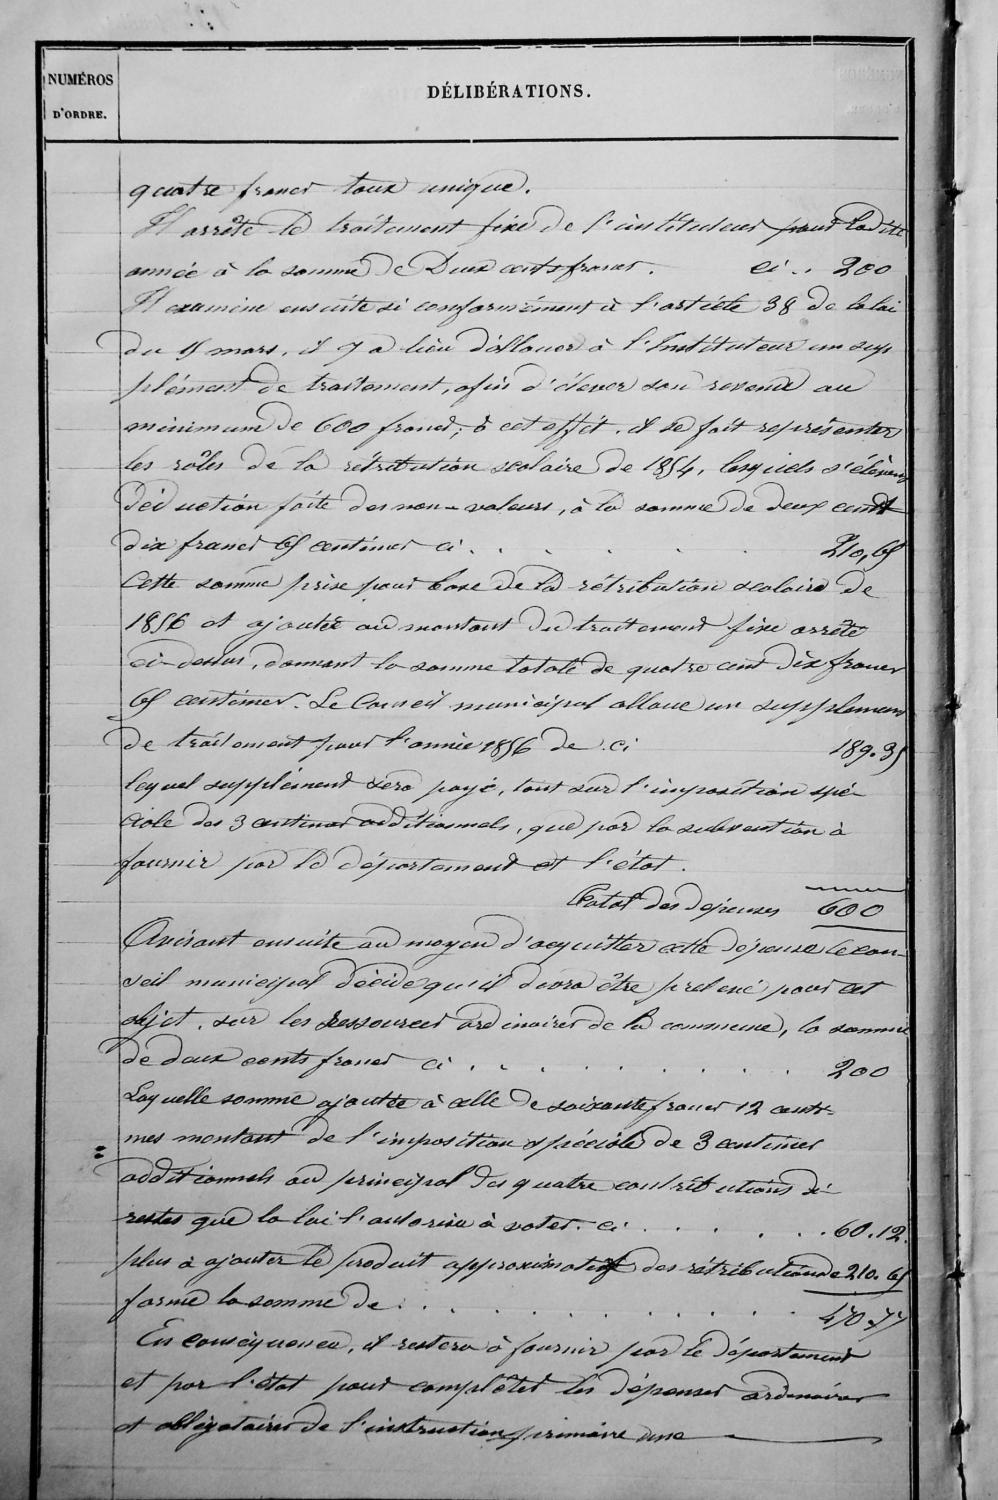 NUMÉROS
D'ORDRE.
DÉLIBÉRATIONS.
quatre francs taux unique.
Il arrête le traitement fixe de l'instituteur pour ladite
année à la somme de Deux cents francs. ci . . 200
Il examine ensuite si conformément à l'article 38 de la loi
du 15 mars, il y a lieu d'allouer à l'Instituteur un sup
plément de traitement, afin d'élever son revenu au
minimum de 600 francs; à cet effet, il se fait représenter
les rôles de la rétribution scolaire de 1854, lesquels s'élèvent
déduction faite des non-valeurs, à la somme de deux cent
dix francs 65 centimes ci . . . . . . . 210,65
Cette somme prise pour base de la rétribution scolaire de
1856 et ajoutée au montant du traitement fixe arrêté
ci-dessus, donnant la somme totale de quatre cent dix francs
65 centimes. Le Conseil municipal alloue un supplement
de traitement pour l'année 1856 de ci 189.35
lequel supplément sera payé, tant sur l'imposition spé-
ciale des 3 centimes additionnels, que par la subvention à
fournir par le département et l'état.
Total des dépenses 600
Avisant ensuite au moyen d'acquitter cette dépense le con-
seil municipal décide qu'il devra être prelevé pour cet
objet, sur les ressources ordinaires de la commune, la somme
de deux cents francs ci . . . . . . . . . 200
Laquelle somme ajoutée à celle de soixante francs 12 centi-
mes montant de l'imposition spéciale de 3 centimes
additionnels au principal des quatre contributions di-
rectes que la loi l'autorise à voter. ci . . . . . . 60.12.
plus à ajouter le produit approximatif des rétributions de 210.65
forme la somme de . . . . . . . . . . 470.77
En conséquence, il restera à fournir par le département
et par l'état pour complèter les dépenses ordinaires
et obligatoires de l'instruction primaire une